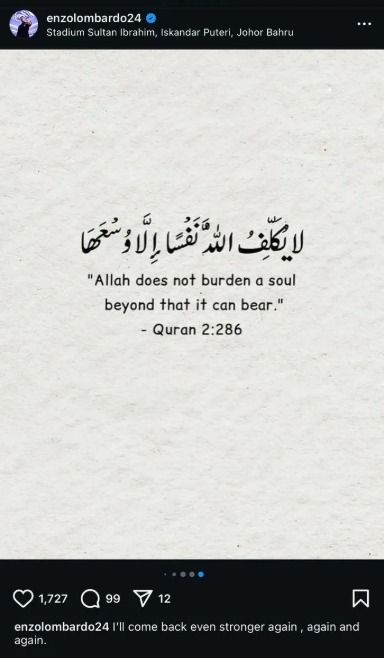 enzolombardo24
Stadium Sultan Ibrahim, Iskandar Puteri, Johor Bahru
لا يُكَلِّفُ اللَّهُ نَفْسًا إِلَّا وُسْعَهَا
"Allah does not burden a soul
beyond that it can bear."
- Quran 2:286
1,727 99 12
enzolombardo24 I'll come back even stronger again , again and
again.